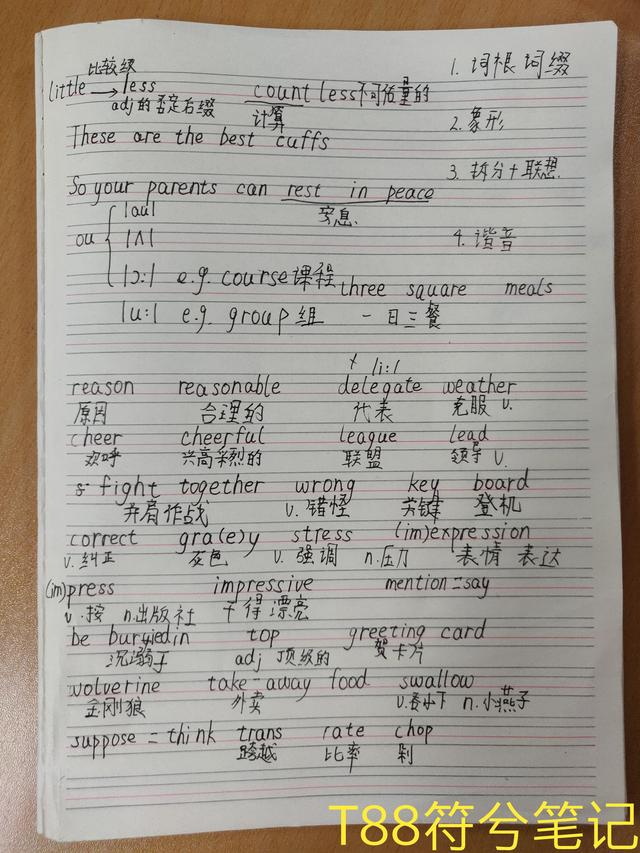 比较级
1. 词根词缀
little → less countless不可估量的
adj的否定右缀 计算
2. 象形
These are the best cuffs
3. 拆分+联想.
So your parents can rest in peace
安息.
ou { |au|
|ʌ|
4. 谐音
|ɔ:| e.g. course课程
three square meals
|u:| e.g. group组 一日三餐
+ |i:|
reason reasonable delegate weather
原因 合理的 代表 克服 v.
cheer cheerful league lead
欢呼 兴高采烈的 联盟 领导 v.
fight together wrong key board
并肩作战 v.错怪 关键 登机
correct gra(e)y stress (im)expression
v.纠正 灰色 v.强调 n.压力 表情 表达
(im)press impressive mention=say
v.按 n.出版社 干得漂亮
be buried in top greeting card
沉溺于 adj 顶级的 贺卡片
wolverine take-away food swallow
金刚狼 外卖 v.吞小下 n.小燕子
suppose = think trans rate chop
跨越 比率 剁
T88符兮笔记